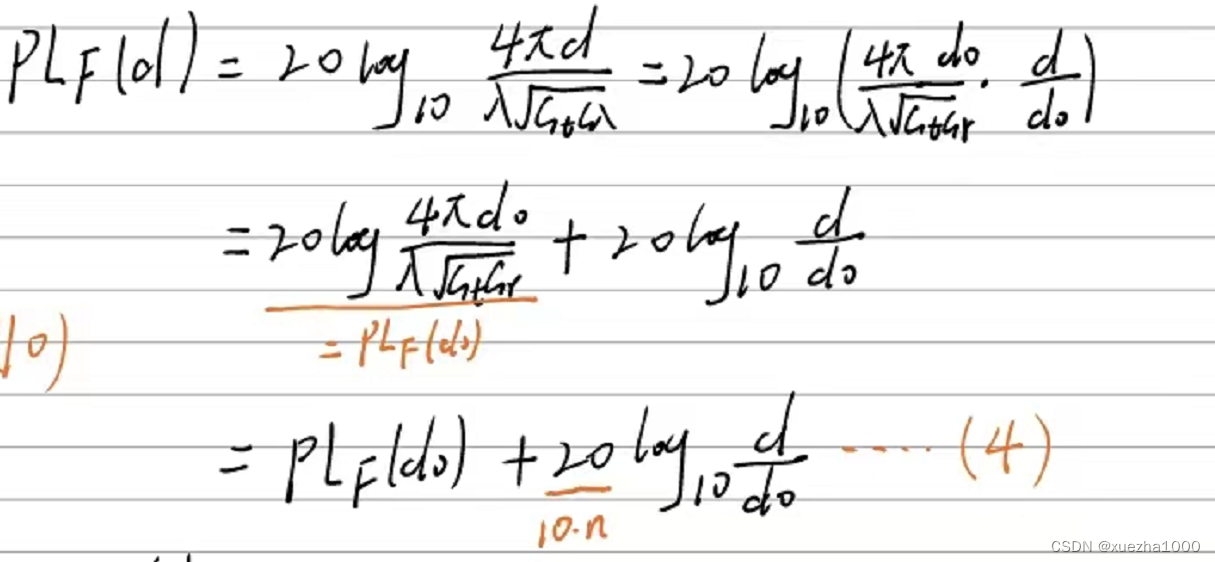 PL_F(d) = 20 log_10 4πd / λ√GtGr = 20 log_10 (4π d0 / λ√GtGr · d / d0)
= 20 log 4πd0 / λ√GtGr + 20 log_10 d / d0
10)
= PL_F(d0)
= PL_F(d0) + 20 log_10 d / d0 ····· (4)
10·n
CSDN @xuezha1000